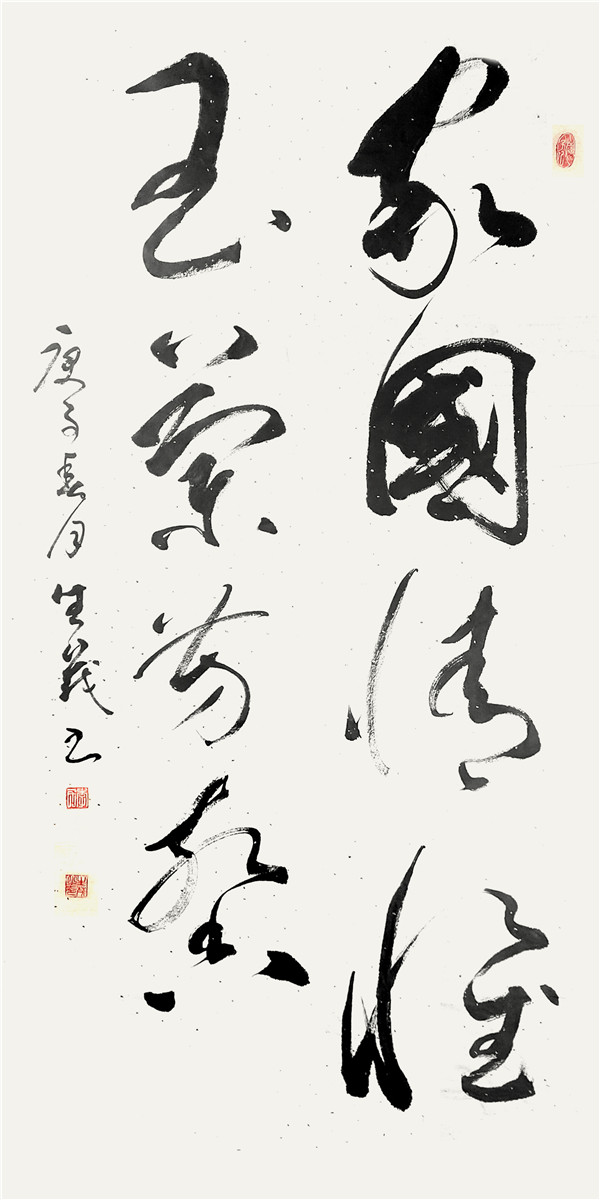 家國情懷
玉蘭芳馨
庚子春月生義书